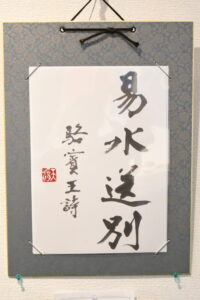 易水送別
駱賓王詩